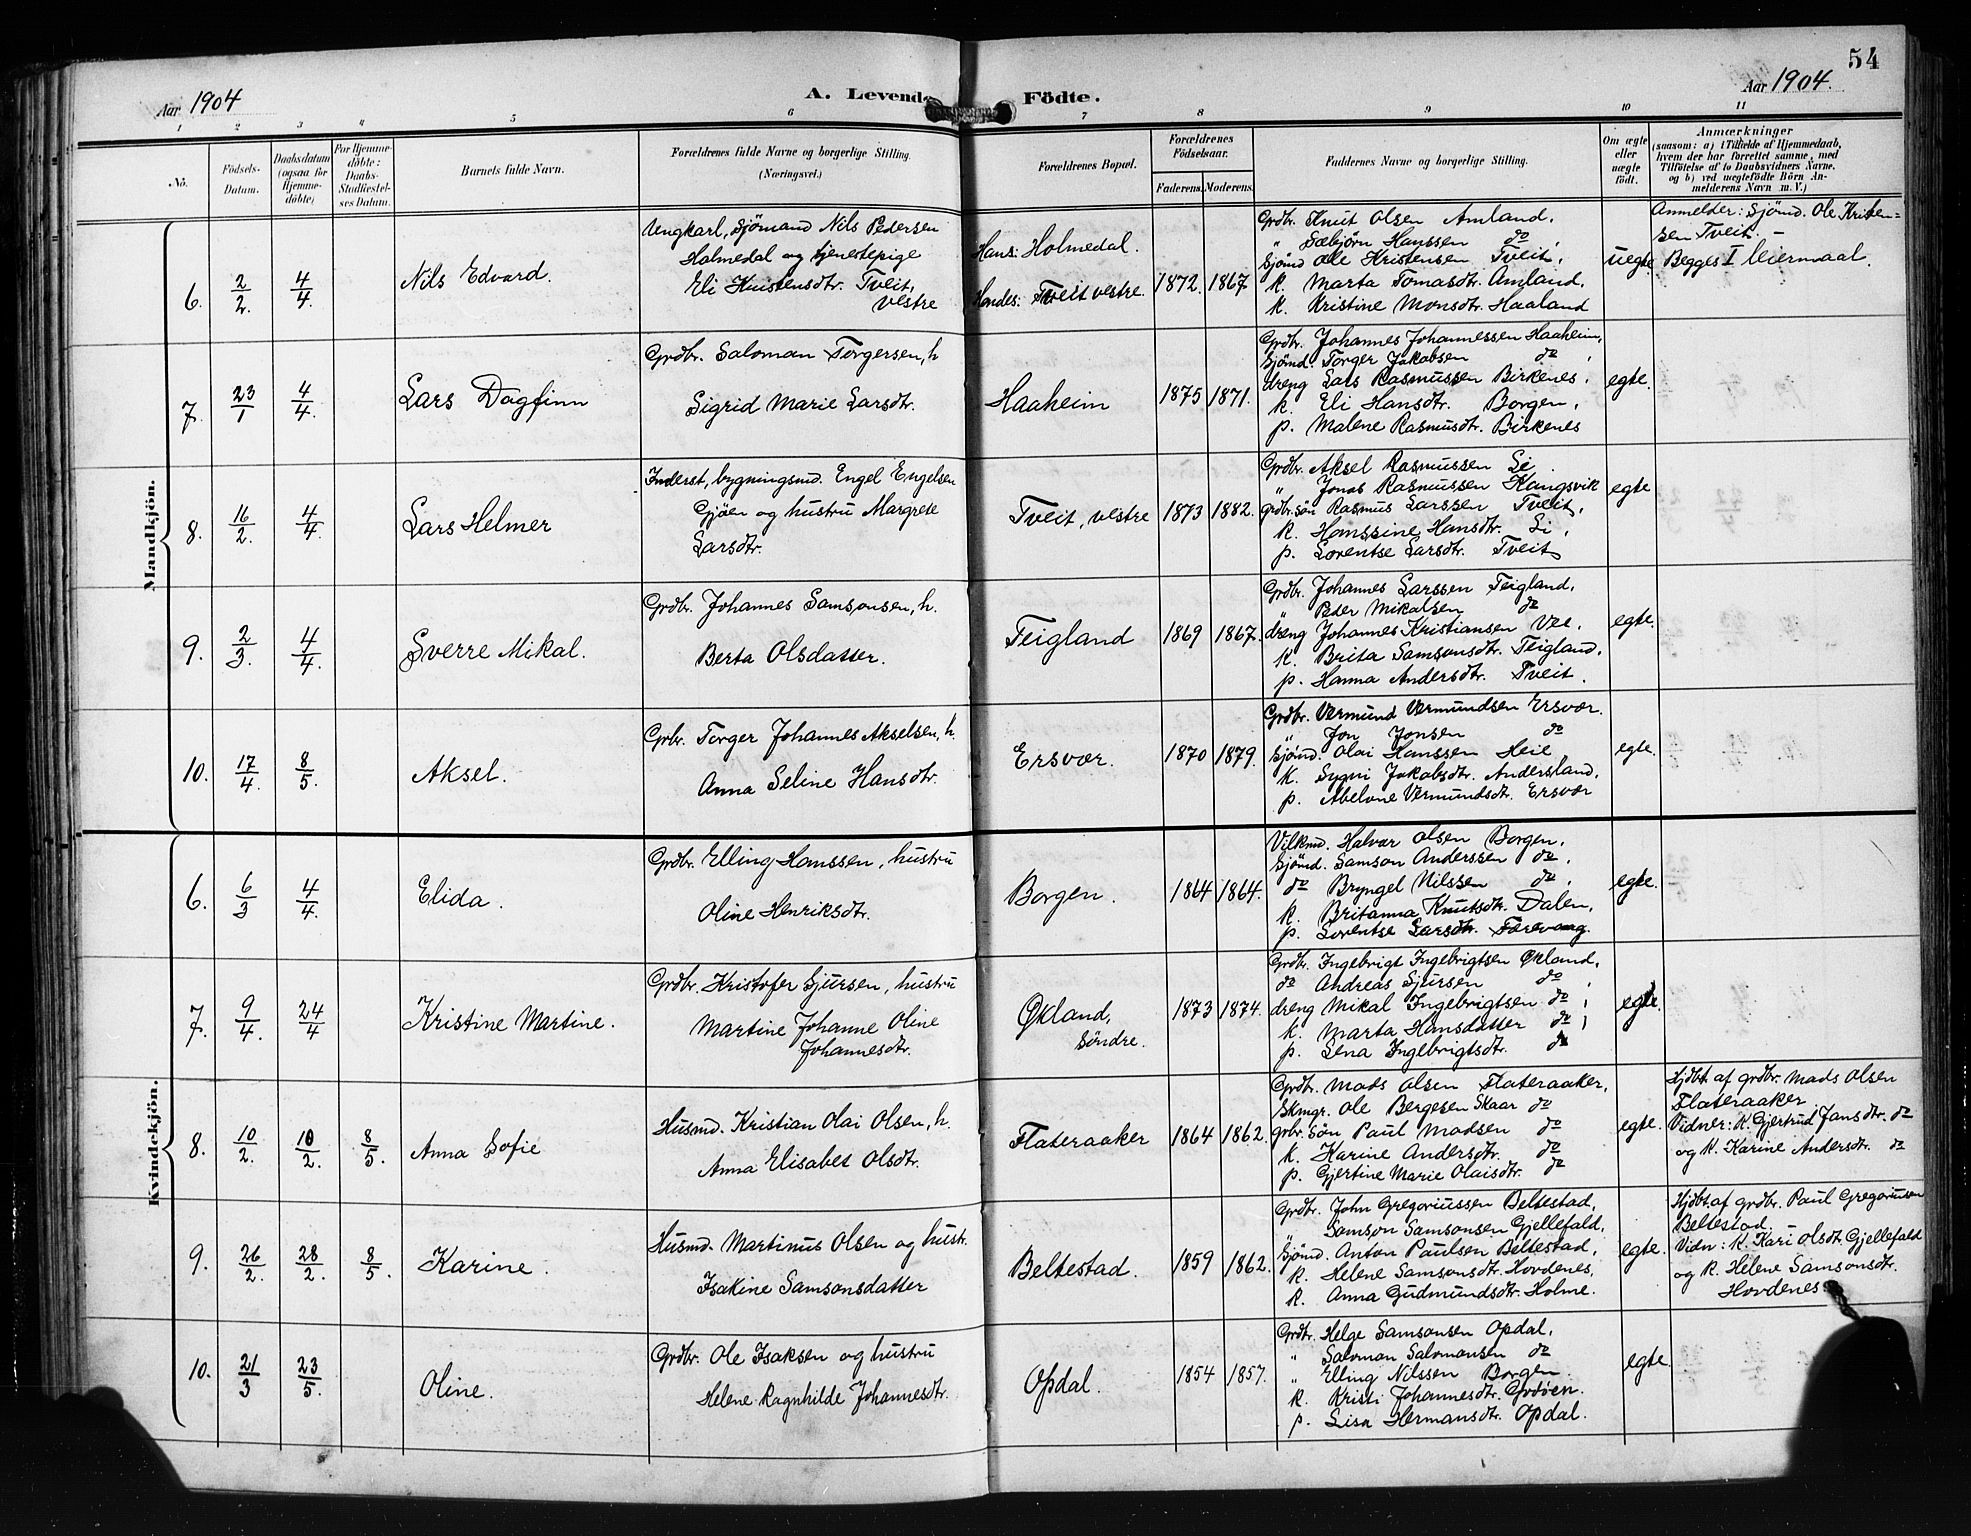 54
Aar 1904
A. Levende Födte.
Aar 1904.
1 2 3 4 5 6 7 8 9 10 11
No.
Födsels-
Datum.
Daabsdatum
(ogsaa for
Hjemme-
döbte)
For Hjemme-
döbte:
Daabs-
Stadfæstel-
ses Datum.
Barnets fulde Navn.
Forældrenes fulde Navne og borgerlige Stilling.
(Næringsvei.)
Forældrenes Bopæl.
Forældrenes
Födselsaar.
Faderens. Moderens.
Faddernes Navne og borgerlige Stilling.
Om ægte
eller
uægte
födt.
Anmærkninger
(saasom: a) i Tilfælde af Hjemmedaab,
hvem der har forrettet samme, med
Tilföielse af to Daabsvidners Navne,
og b) ved uægtefödte Börn An-
melderens Navn m. V.)
Mandkjön.
6. 2/2. 4/4. Nils Edvard.
Ungkarl, Sjömand Nils Pedersen
Holmedal og tjenestepige
Eli Kristensdtr. Tveit,
vestre
Hans: Holmedal.
Hendes: Tveit vestre.
1872. 1867
Grdbr. Knut Olsen Amland,
" Sæbjörn Hanssen do,
Sjömd Ole Kristensen Tveit,
k. Marta Tomasdtr. Amland,
k. Kristine Monsdtr. Haaland
uegte
Anmelder: Sjömd. Ole Kristen-
sen Tveit. -
Begges I leiermaal.
7. 23/1 4/4. Lars Dagfinn
Grdbr. Saloman Torgersen, h
Sigrid Marie Larsdtr.
Haaheim
1875 1871.
Grdbr. Johannes Johannessen Haaheim,
Sjömd. Torger Jakobsen do,
dreng Lars Rasmussen Birkenes,
k. Eli Hansdtr. Borgen,
p. Malene Rasmusdtr. Birkenes
egte.
8. 16/2. 4/4. Lars Helmer
Inderst, bygningsmd. Engel Engelsen
Gjöen og hustru Margrete
Larsdtr.
Tveit, vestre
1873 1882.
Grdbr. Aksel Rasmussen Li
" Jonas Rasmussen Kangsvik
grdbr.sön Rasmus Larssen Tveit,
k. Hanssine Hansdtr. Li,
p. Lorentse Larsdtr. Tveit
egte
9. 2/3. 4/4. Sverre Mikal.
Grdbr. Johannes Samsonsen, h.
Berta Olsdatter.
Teigland
1869 1867.
Grdbr. Johannes Larssen Teigland,
" Peder Mikalsen do
dreng Johannes Kristiansen Vee,
k. Brita Samsonsdtr. Teigland,
p. Hanna Andersdtr. Tveit.
egte.
10. 17/4. 8/5. Aksel.
Grbr. Torger Johannes Akselsen, h.
Anna Seline Hansdtr.
Ersvær.
1870 1879.
Grdbr. Vermund Vermundsen Ersvær.
" Jon Jonsen do
Sjömd. Olai Hanssen Heie
k. Sygni Jakobsdtr. Andersland,
p. Abelone Vermundsdtr. Ersvær
egte.
Kvindekjön.
6. 6/3 4/4. Elida.
Grdbr. Elling Hanssen, hustru
Oline Henriksdtr.
Borgen.
1864 1864.
Vilkmd. Halvar Olsen Borgen,
Sjömd. Samson Anderssen do,
do Bryngel Nilssen do,
k. Britanna Knutsdtr. Dalen,
p. Lorentse Larsdtr. Færevaag.
egte.
7. 9/4. 24/4 Kristine Martine.
Grdbr. Kristofer Sjursen, hustru
Martine Johanne Oline
Johannesdtr.
Økland,
söndre.
1873 1874.
Grdbr. Ingebrigt Ingebrigtsen Økland,
do Andreas Sjursen do,
dreng Mikal Ingebrigtsen do,
k. Marta Hansdatter do,
p. Lena Ingebrigtsdtr. do
egte.
8. 10/2. 10/2. 8/5. Anna Sofie
Husmd. Kristian Olai Olsen, h.
Anna Elisabet Olsdtr.
Flateraaker
1864 1862.
Grdbr. Mads Olsen Flateraaker,
Skmgr. Ole Bergesen Skaar do
grbr. sön Paul Madsen do
k. Karine Andersdtr. do
p. Gjertine Marie Olaisdtr. do
egte.
Hjdbt af grdbr. Mads Olsen
Flateraaker
Vidner: K. Gjertrud Jansdtr. do
og K. Karine Andersdtr. do
9. 26/2. 28/2. 8/5. Karine.
Husmd. Martinus Olsen og hustr.
Isakine Samsonsdatter
Beltestad.
1859 1862.
Grdbr. John Gregoriussen Beltestad,
" Samson Samsonsen Gjellefald,
Sjömd. Anton Paulsen Beltestad,
k. Helene Samsonsdtr. Hovdenes,
k. Anna Gudmundsdtr. Holme.
egte.
Hjdbt af grdbr. Paul Gregoriusen
Beltestad.
Vidn: K. Kari Olsdt. Gjellefald
og K. Helene Samsonsdtr.
Hovdenes
10. 21/3 23/5. Oline.
Grdbr. Ole Isaksen og hustru
Helene Ragnhilde Johannesdtr.
Opdal.
1854 1857.
Grdbr. Helge Samsonsen Opdal,
" Salomon Salomonsen do
" Elling Nilssen Borgen
k. Kristi Johannesdtr. Grdöen.
p. Lisa Hermansdtr. Opdal.
egte.